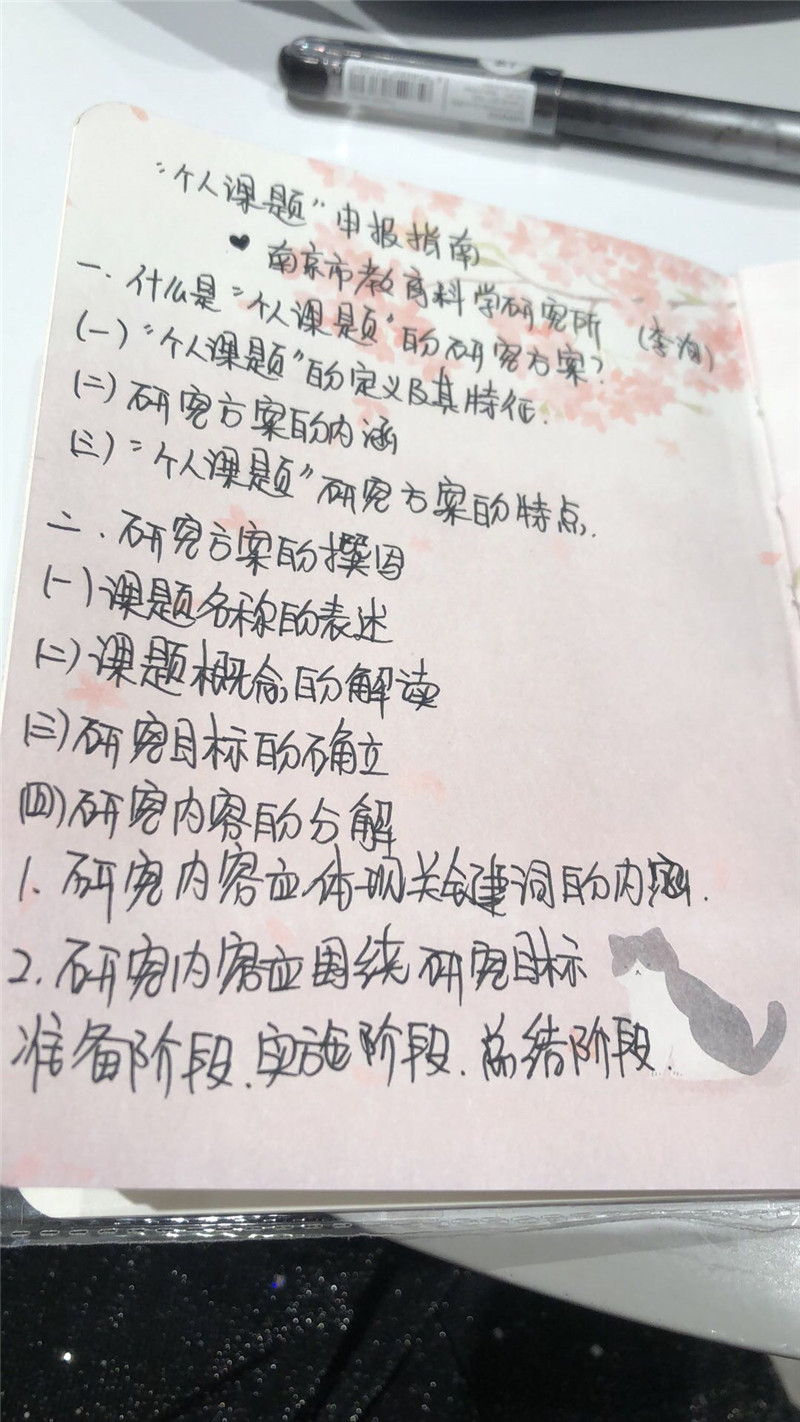 “个人课题”申报指南
♥ 南京市教育科学研究所（李洵）
一.什么是“个人课题”的研究方案？
(一)“个人课题”的定义及其特征.
(二)研究方案的内涵
(三)“个人课题”研究方案的特点.
二.研究方案的撰写
(一)课题名称的表述
(二)课题概念的解读
(三)研究目标的确立
(四)研究内容的分解
1.研究内容应体现关键词的内涵.
2.研究内容应围绕研究目标
准备阶段.实施阶段.总结阶段.